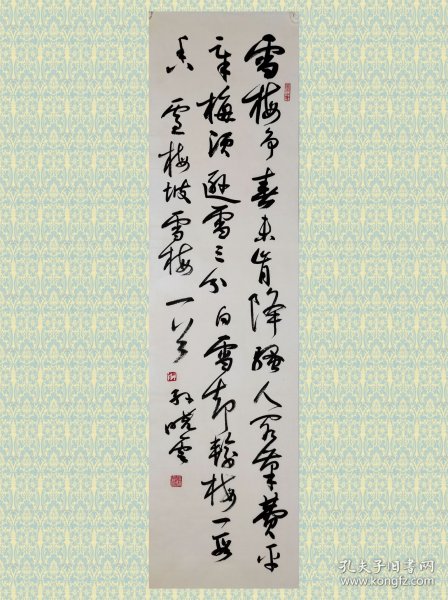 雪梅争春未肯降骚人阁笔费平
章梅须逊雪三分白雪却输梅一段
香 卢梅坡雪梅一首 孙晓云
孔夫子旧书网
www.kongfz.com